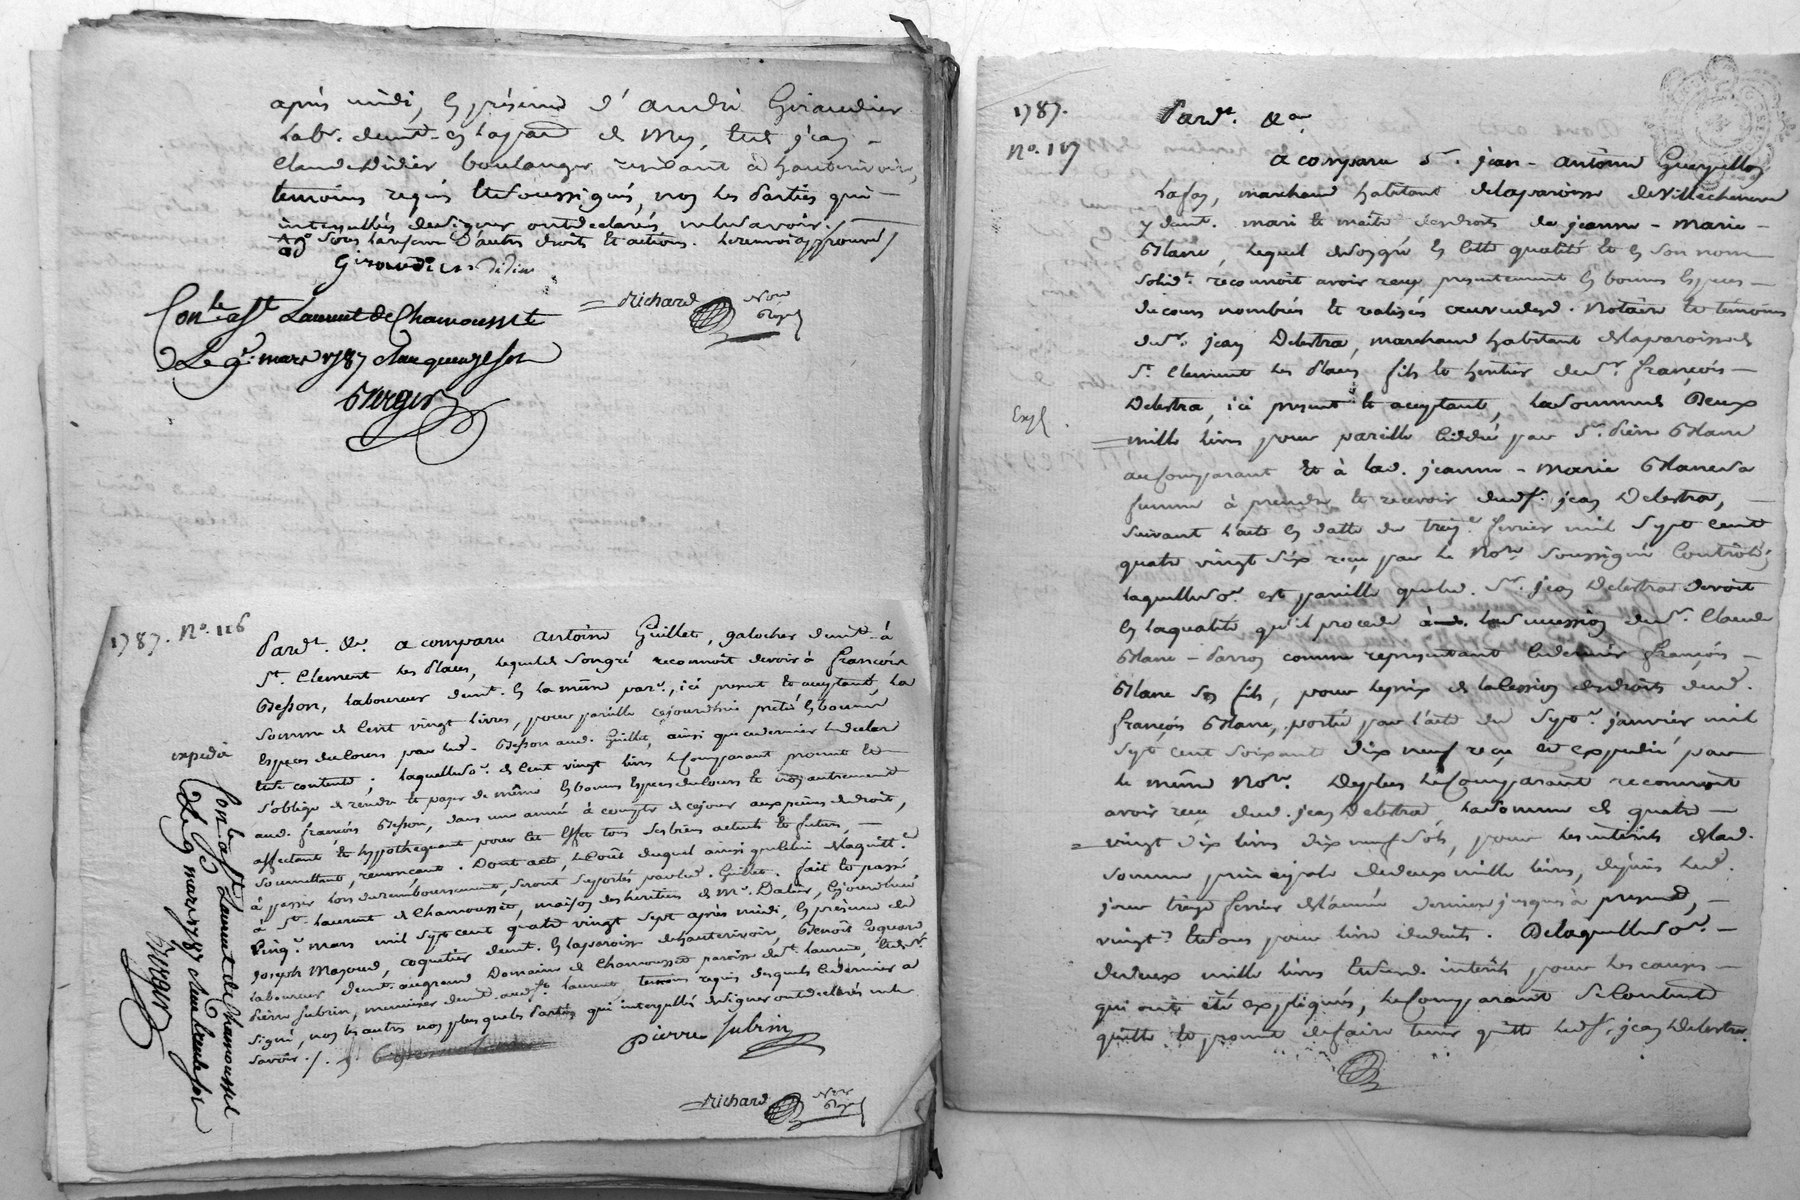 après midi, En présence d'andré Giraudier
Labr. demt. en laparr. de Mey, Et de jean
Claude Didier, boulanger residant à hauterivoire,
temoins requis Et soussignés, non les Parties qui
interpellés de signer ont declarés ne le savoir ./.
sous la reserve d'autres droits et actions. Le renvoi approuvé /
Giraudier Didier
Richard Nore Royal
Conlé a St Laurent de Chamousset
Le 9e. mars 1787 reçu quinze sols
Berger
1787. No. 116
Pardt. &a. a comparu antoine Guillet, galocher demt. à
St. Clement les Places, lequel de son gré reconnoit devoir à françois
Besson, laboureur demt. En la même parr., ici present et acceptant, la
somme de Cent vingt livres, pour pareille cejourdhui prêté En bonnes
Especes de Cours par led. Besson aud. Guillet, ainsi que ce dernier le declare
Et est content ; laquelle so. de Cent vingt livres le Comparant promet Et
s'oblige de rendre Et payer de même En bonnes Especes de Cours Et non autrement
aud. françois Besson, dans une année à compter de cejour aux peines de droit,
affectant Et hypothequant pour cet Effet tous ses biens actuels Et futurs,
soumettant, renonçant. Dont acte, le Coût duquel ainsi que celui de la quitte.
à passer lors du remboursement, seront suportés par led. Guillet. fait Et passé
à St. laurent de Chamousset, maison des heritiers de Me. Dalier, Cejourdhui
Cinq. mars mil sept cent quatre vingt sept après midi, En présence de
Joseph Mazaud, coquetier demt. En la paroisse de hauterivoire, Benoit Coquard
laboureur demt. au grand Domaine de Chamousset paroisse de St. laurent, Et de Sr.
pierre Subrin, menuisier demt. aud. St. laurent, temoins requis desquels ce dernier a
signé, non les autres non plus que les Parties qui interpellés de signer ont declarés ne le
savoir ./.
pierre Subrin
Richard Nore Royal
expedié
Conlé a St Laurent de Chamousset
Le 9 mars 1787
Berger
1787.
No. 117
Pardt. &a.
a comparu Sr. jean-antoine
marchand habitant de la paroisse de Villechenève
y demt. mari Et maitre des droits de jeanne-Marie
Blanc, Lequel de son gré En cette qualité Et En son nom
solidt. reconnoit avoir reçu presentement En bonnes Especes
de cours nombrés Et realisés au vu desd. Notaire Et temoins
de Sr. jean Delestra, marchand habitant de la paroisse de
St. Clement les Places fils Et heritier de Sr. françois
Delestra, ici present Et acceptant, la somme de Deux
mille livres pour pareille cédée par Sr. Pierre Blanc
au Comparant Et à lad. jeanne-Marie Blanc sa
femme à prendre Et recevoir dud. Sr. jean Delestra,
suivant l'acte En datte du treize fevrier mil sept cent
quatre vingt six reçu par le Nore. soussigné Contrôlé,
laquelle so. est pareille que led. Sr. jean Delestra devoit
En la qualité qu'il procede à la succession de Sr. Claude
Blanc-Darron comme representant ce dernier françois
Blanc son fils, pour le prix de la Cession des droits dud.
françois Blanc, portée par l'acte du sept. janvier mil
sept cent soixante dix neuf reçu Et expedié par
le même Nore. De plus le Comparant reconnoit
avoir reçu dud. jean Delestra, la somme de quatre
vingt dix livres dix neuf sols, pour les interêts de lad.
somme principale de deux mille livres, depuis led.
jour treize fevrier de l'année derniere jusques à present,
vingt. Et sous pour livre deduits. De laquelle so.
de deux mille livres Et susd. interêts pour les causes
qui ont été expliqués, le Comparant se Contente
quitte Et promet de faire tenir quitte led. Sr. jean Delestra
Expé.